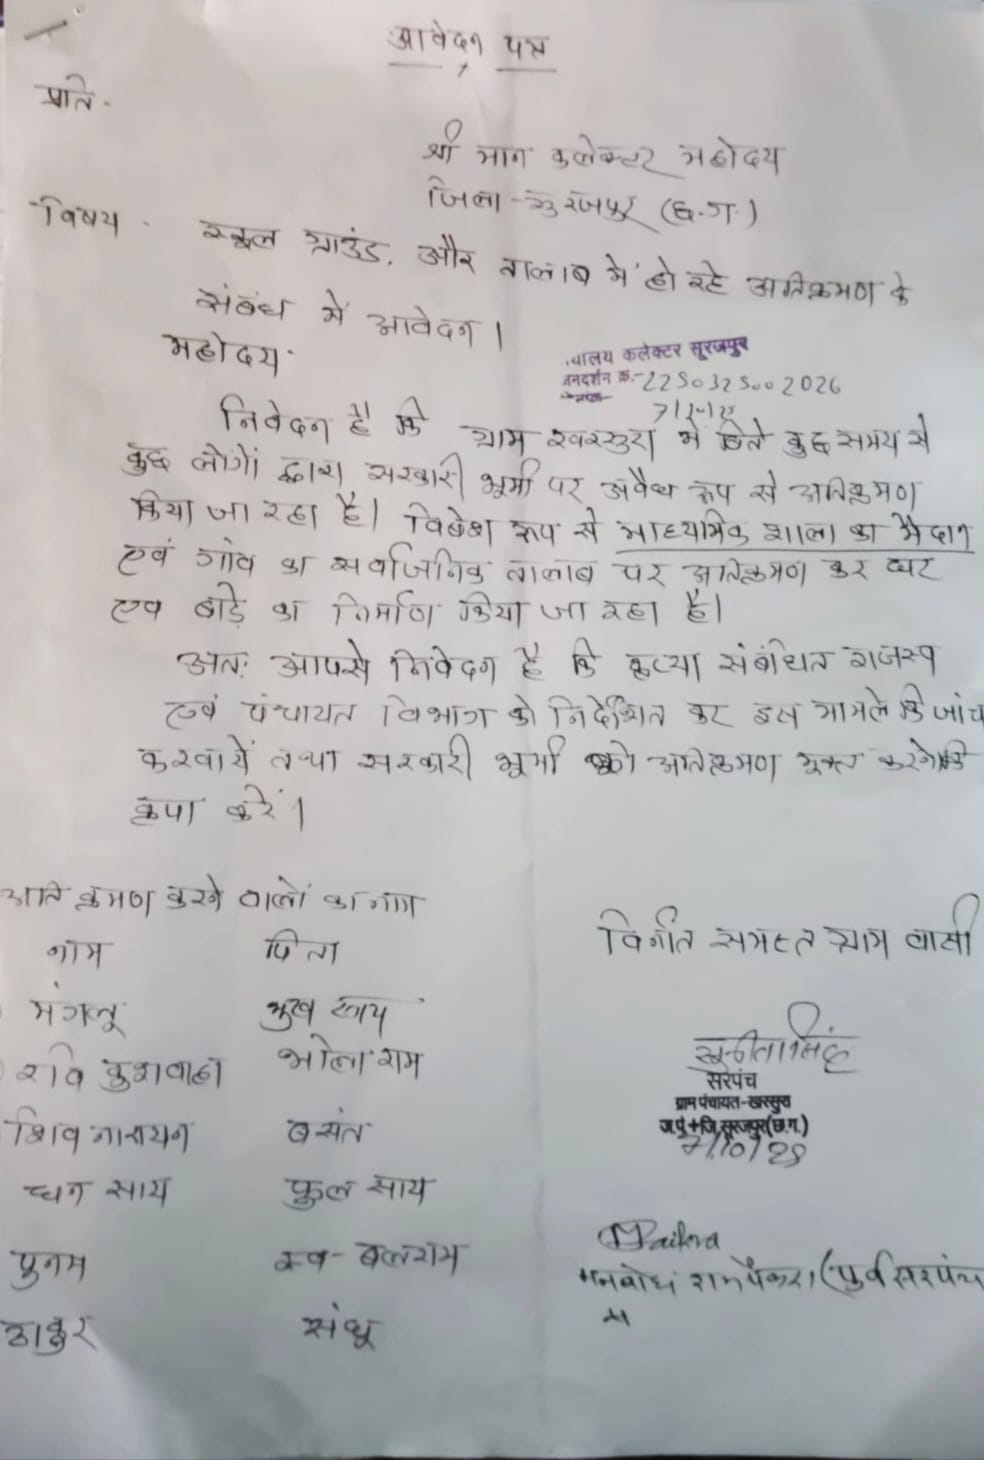 आवेदन पत्र
प्रति.
श्री मान कलेक्टर महोदय
जिला-सुरजपुर (छ.ग.)
विषय - स्कूल ग्राउंड, और तालाब में हो रहे अतिक्रमण के
संबंध में आवेदन।
महोदय.
कलेक्टर सूरजपुर
जनदर्शन क्र.-2250325002026
निवेदन है कि ग्राम खरसुरा में बिते कुछ समय से
कुछ लोगों द्वारा सरकारी भूमी पर अवैध रूप से अतिक्रमण
किया जा रहा है। विशेष रूप से माध्यमिक शाला का मैदान
एवं गांव का सर्वाजनिक तालाब पर अतिक्रमण कर घर
एव बाड़े का निर्माण किया जा रहा है।
अतः आपसे निवेदन है कि कृप्या संबंधित राजस्व
एवं पंचायत विभाग को निर्देशित कर इस मामले कि जांच
करवायें तथा सरकारी भूमी को अतिक्रमण मुक्त करने कि
कृपा करें।
अतिक्रमण करने वालों का नाम
विनीत समस्त ग्राम वासी
नाम पिता
मंगलू भुख साय
रवि कुशवाहा भोला राम
शिव नारायन बसंत
धन साय फुल साय
पुनम स्व- बलराम
ठाकुर संधू
सुनीता सिंह
सरपंच
ग्राम पंचायत-खरसुरा
ज.पं.+जि.सूरजपुर(छ.ग.)
7/10/25
Paikra
मनबोध राम पैकरा (पुर्व सरपंच